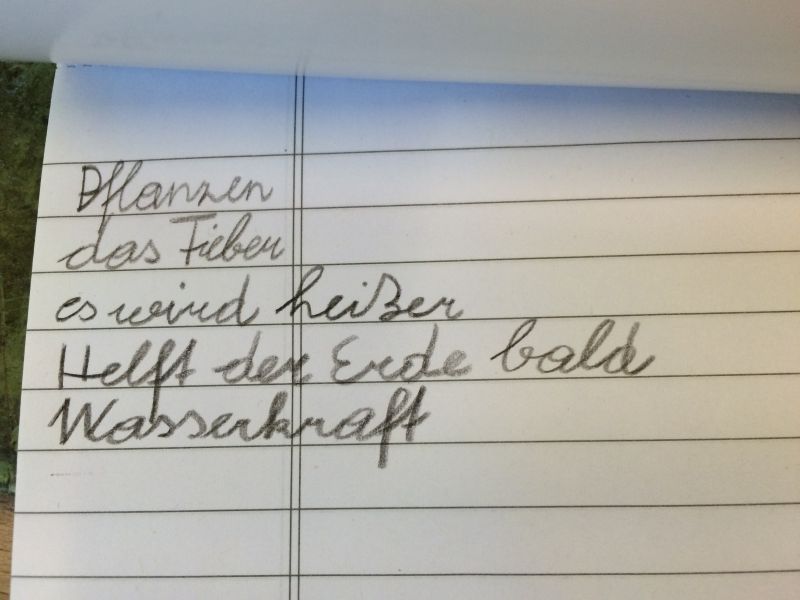 Pflanzen
das Fieber
es wird heißer
Helft der Erde bald
Wasserkraft